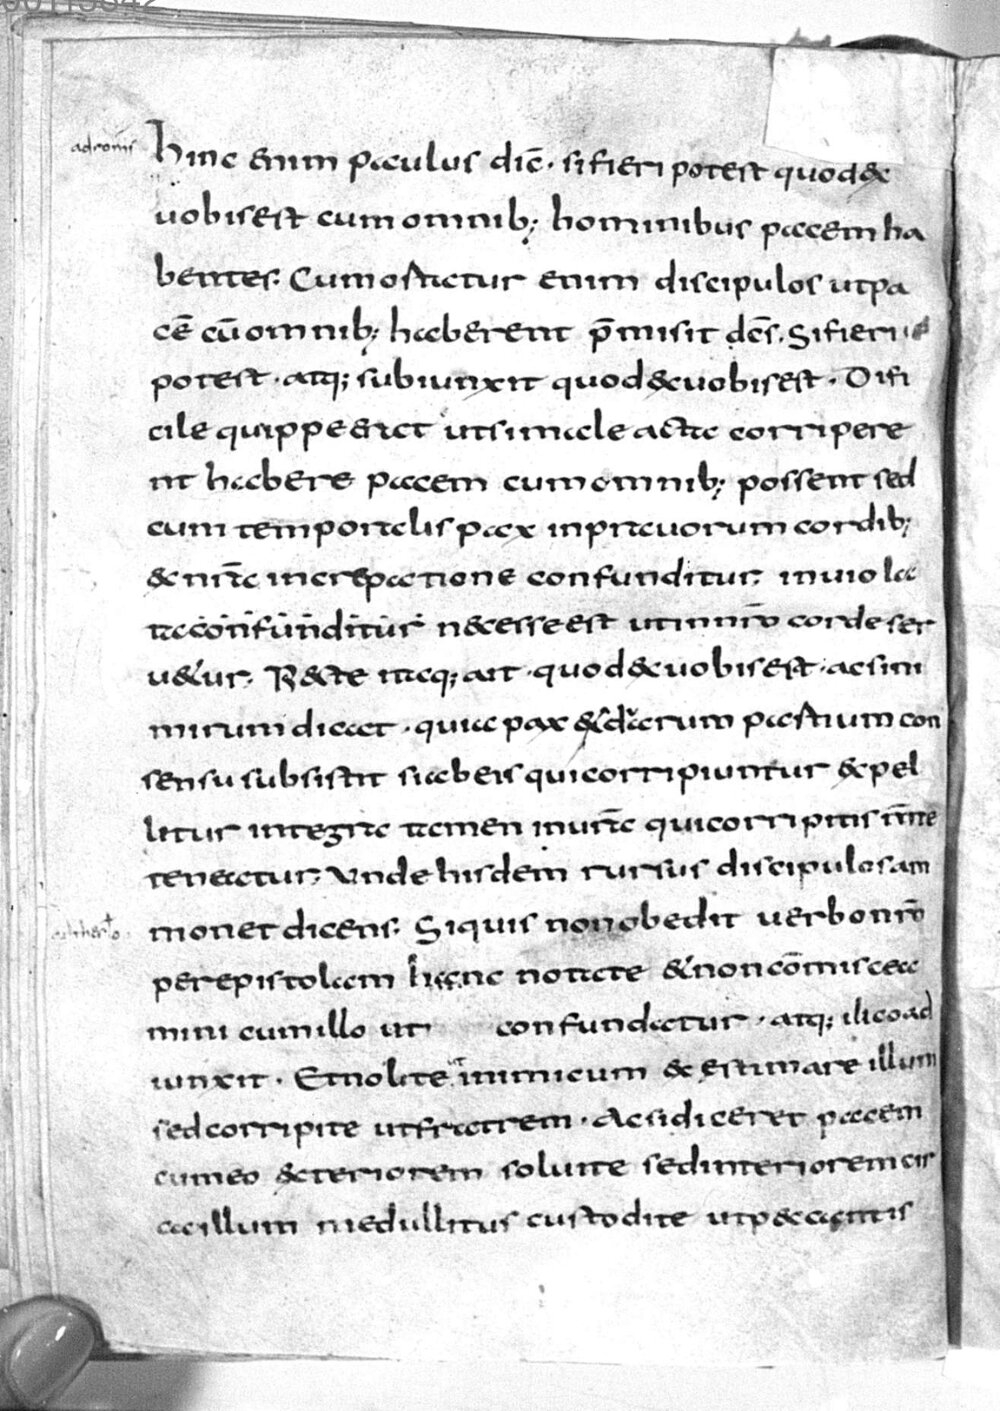 adromis
hinc enim paulus dic̄. si fieri potest quod ex
uobis est cum omnib; hominibus pacem ha
bentes. Cum ortatur enim discipulos ut pa
cē cū omnib; haberent p̄misit dc̄s. Si fieri
potest. atq; subiunxit quod ex uobis est. Difi
cile quippe erat ut si male acta corripere
nt habere pacem cum omnib; possent sed
cum temporalis pax in prauorum cordib;
ex nr̄a increpatione confunditur; inuiola
ta confunditur necesse est ut in nr̄o corde ser
uetur. Recte itaq; ait. quod ex uobis est. ac si ni
mirum dicat. quia pax et duarum partium con
sensu subsistit si ab eis qui corripiuntur expel
litur integra tamen in ur̄a qui corripitis m̄te
teneatur; Unde hisdem rursus discipulos am
monet dicens. Si quis non obedit uerbo nr̄o
per epistolam hanc notate et non cōmiscea
mini cum illo ut confundatur. atq; ilico ad
iunxit. Et nolite ut inimicum exęstimare illum
sed corripite ut fratrem. Ac si diceret pacem
cum eo exteriorem soluite sed interiorem cir
ca illum medullitus custodite ut peccantis